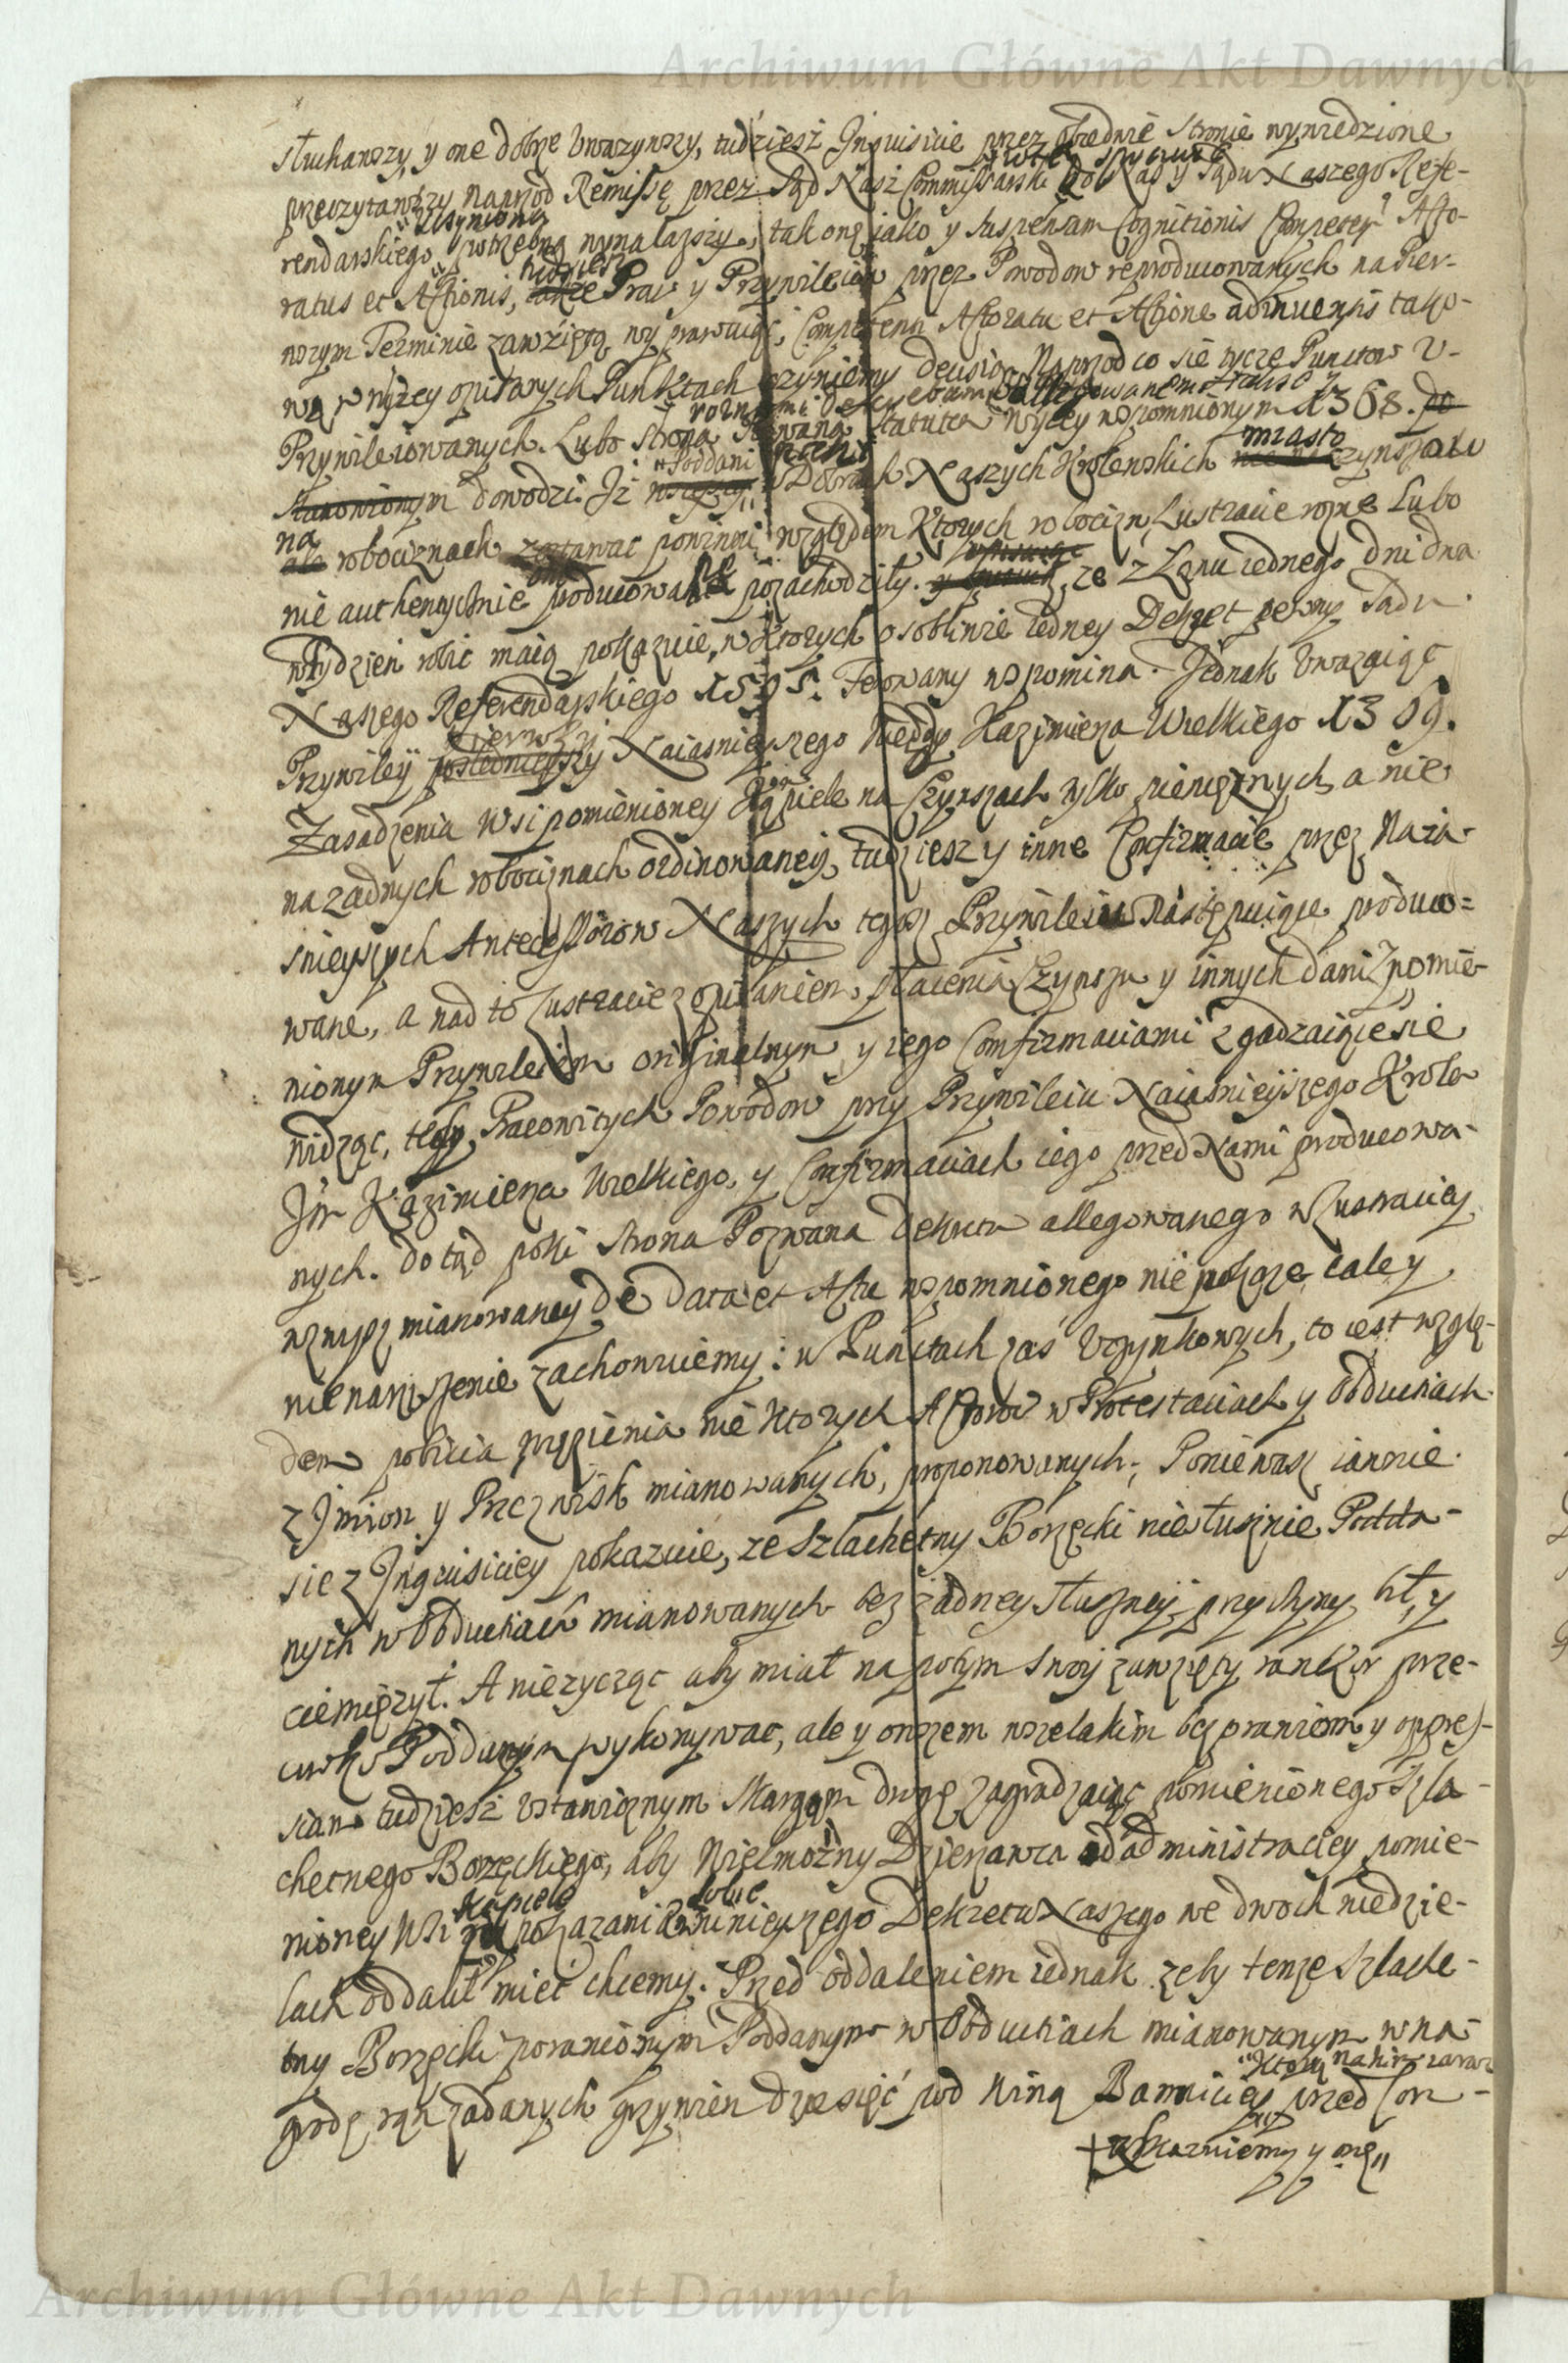 Archiwum Główne Akt Dawnych
słuchawszy, y one dobrze Uwazywszy, tudziesz Inquisicie przez obiedwie Stronie wywiedzione
w tey sprawie
przeczytawszy naprzod Remissę przez Sąd Nasz Commissarski do Nas y Sądu Naszego Refe-
uczyniona
rendarskiego potrzebną wynalazszy, tak onę jako y suspensam Cognitionis Competen Acto-
tudziesz
ratus et Actionis, także Praw y Przywileiow przez Powodow reproducowanych na Pier-
wszym Terminie zawziętą wyprawuiąc, Competenti Actoratu et Actione adinventis tako-
wą w niżey opisanych Punktach czyniemy decisią. Naprzod co się tycze Punctow U-
roznymi allegowanem
Przywileiowanych. Lubo Strona Pozwana Statutem wyżey wspomnionym 1368. po
Poddani
stanowionym dowodzi Iż w Dobrach Naszych Krolewskich miasto czynszow
na
ale robociznach zostawac powinni, względem Ktorych robocizn Lustracie rozne Lubo
nie authentycznie producowane pozachodziły. ze z Łanu iednego dni dwa
w Tydzien robic maią pokazuie, w Ktorych osobliwie iedney Dekret pewny Sądu
Naszego Referendarskiego 1595. Ferowany wspomina. Jednak Uwazaiąc
pierwszy
Przywiley poslednieyszy Naiasnieyszego niegdy Kazimierza Wielkiego 1369.
Zasadzenia Wsi pomienioney Kąpiele na Czynszach tylko pieniężnych, a nie
na zadnych robociznach ordinowaney, tudziesz y inne Confirmacie przez Naia-
snieyszych Antecessorow Naszych tegosz Przywileiu następuiące produco-
wane, a nad to Lustracie z opisaniem płacenia Czynszu y innych dani z pomie-
nionym Przywileiem originalnym y iego Confirmaciami zgadzaiące się
widząc, tedy Pracowitych Powodow przy Przywileiu Naiasnieyszego Krola
Jm Kazimierza Wielkiego, y Confirmaciach iego przed Nami producowa-
nych. do tąd poki Strona Pozwana Dekretu allegowanego w Lustraciey
wzwysz mianowaney de Data et Actu wspomnionego nie pokaze, cale y
nienaruszenie zachowuiemy: w Punctach zas Uczynkowych, to iest wzglę-
dem pobicia męczenia nie Ktorych Actorow w Protestaciach y Obductiach
z Jmion y Przezwisk mianowanych, proponowanych; Poniewasz iawnie
się z Inquisiciey pokazuie, ze Szlachetny Borzęcki niesłusznie Podda-
nych w Obductiach mianowanych bez żadney słuszney przyczyny bił, y
ciemiężył. A nieżycząc aby miał na potym swoy zawzięty rankor prze-
ciwko Poddanym wykonywac, ale y owszem wszelakim bezprawiom y oppres-
siam tudziesz ustawicznym skargom drogę zagradzaiąc pomienionego Szla-
chetnego Borzęckiego, aby Wielmożny Dzierzawca od administraciey pomie-
Kąpiele sobie
nioney Wsi po pokazaniu ninieyszego Dekretu Naszego we dwoch niedzie-
lach oddalił miec chcemy. Przed oddaleniem iednak zeby tenze Szlache-
tny Borzęcki poranionym Poddanym w Obductiach mianowanym w na-
"Ktorą na nim zaraz
grodę ran zadanych grzywien dziesięć pod winą Banniciey przed Con-
+ wskazuiemy y onę"
Archiwum Główne Akt Dawnych